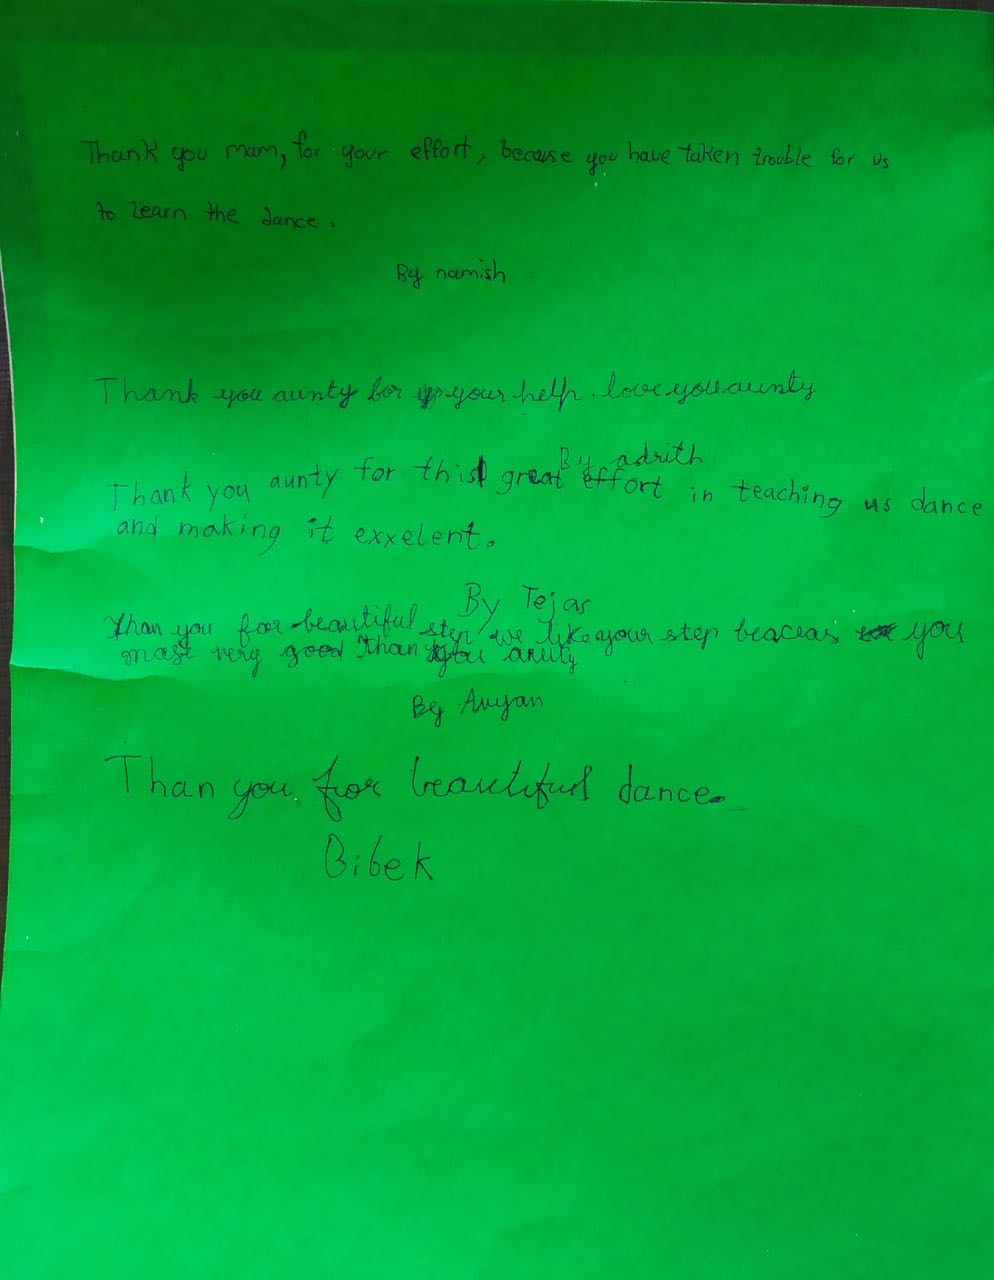 Thank you mam, for your effort, because you have taken trouble for us
to learn the dance.
By namish
Thank you aunty for your help. love you aunty
By adrith
Thank you aunty for this great effort in teaching us dance
and making it exxelent.
By Tejas
Than you for beautiful step we like your step beaceas you
mase very good Than you
By Aryan
Than you for beautiful dance.
Bibek